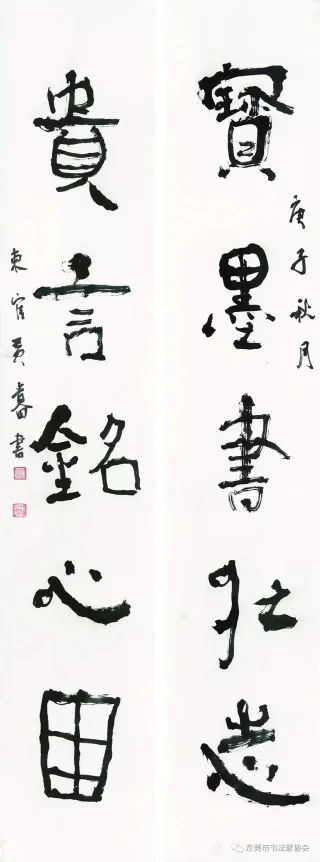 庚子秋月
寶墨書壯志
貴言銘心田
東官黃書
东莞市书法家协会